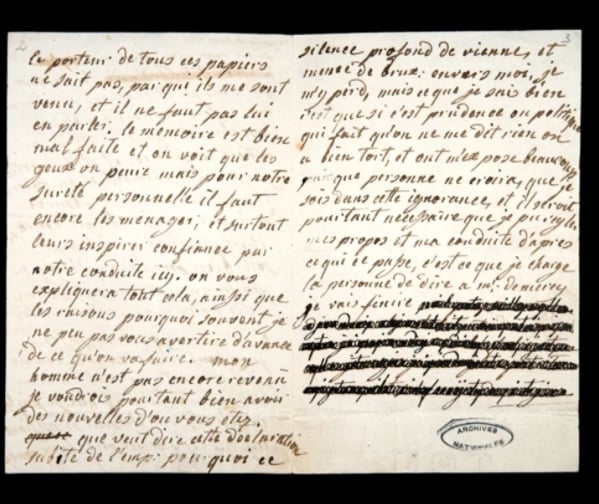 2
le porteur de tous ces papiers
ne sait pas, par qui ils me sont
venu, et il ne faut pas lui
en parler. le mémoire est bien
mal faite et on voit que les
geux on peure mais pour notre
sureté personnelle il faut
encore les menager, et surtout
leurs inspirer confiance par
notre conduite icy. on vous
expliquera tout cela, ainsi que
les raisons pourquoi souvent je
ne peu pas vous avertire d'avance
de ce qu'on va faire. mon
homme n'est pas encore revenu
je voudrois pourtant bien avoir
des nouvelles d'ou vous etez.
que veut dire cette declaration
subite de l'emp: pourquoi ce
3
silence profond de vienne, et
meme de brux: envers moi, je
m'y perd, mais ce que je sais bien
c'est que si c'est prudence ou politique
qui fait qu'on ne me dit rien on
a bien tort, et ont m'expose beaucoup
puisque personne ne croira, que je
sois dans cette ignorance, et il seroit
pourtant necessaire que je puis regler
mes propos et ma conduite d'apres
ce qui ce passe, c'est ce que je charge
la personne de dire a mr: de mercy
je vais finire
ARCHIVES
NATIONALES